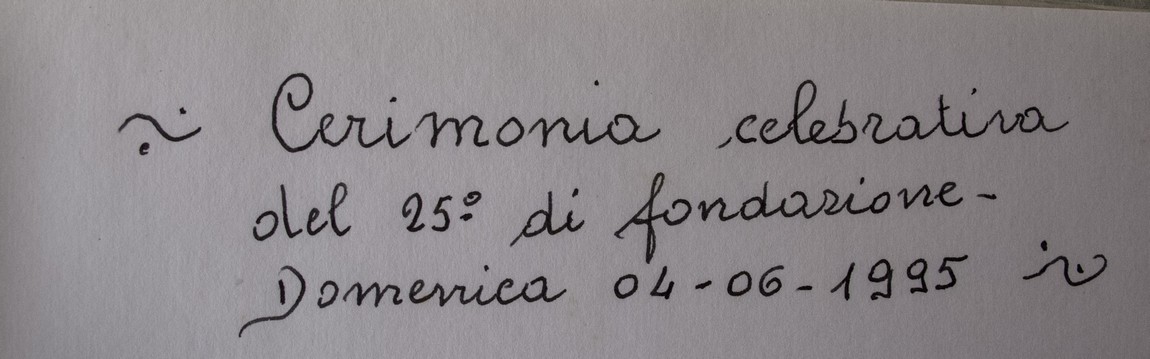 Cerimonia celebrativa
del 25º di fondazione-
Domenica 04-06-1995